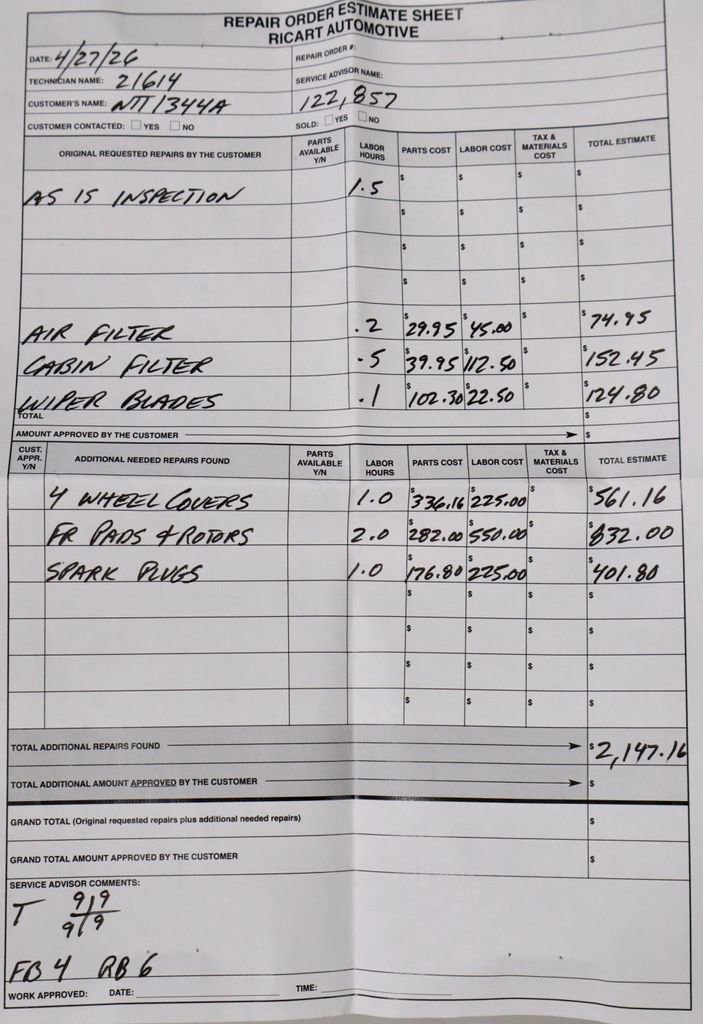 REPAIR ORDER ESTIMATE SHEET
RICART AUTOMOTIVE
DATE: 4/27/26
REPAIR ORDER #:
TECHNICIAN NAME: 21614
SERVICE ADVISOR NAME:
CUSTOMER'S NAME: NTT1344A
122,857
CUSTOMER CONTACTED: ☐ YES ☐ NO
SOLD: ☐ YES ☐ NO
ORIGINAL REQUESTED REPAIRS BY THE CUSTOMER PARTS AVAILABLE Y/N LABOR HOURS PARTS COST LABOR COST TAX & MATERIALS COST TOTAL ESTIMATE
AS IS INSPECTION 1.5 $ $ $ $
$ $ $ $
$ $ $ $
$ $ $ $
AIR FILTER .2 $29.95 $45.00 $ $74.95
CABIN FILTER .5 $39.95 $112.50 $ $152.45
WIPER BLADES .1 $102.30 $22.50 $ $124.80
TOTAL $
AMOUNT APPROVED BY THE CUSTOMER $
CUST. APPR. Y/N ADDITIONAL NEEDED REPAIRS FOUND PARTS AVAILABLE Y/N LABOR HOURS PARTS COST LABOR COST TAX & MATERIALS COST TOTAL ESTIMATE
4 WHEEL COVERS 1.0 $336.16 $225.00 $ $561.16
FR PADS & ROTORS 2.0 $282.00 $550.00 $ $832.00
SPARK PLUGS 1.0 $176.80 $225.00 $ $401.80
$ $ $ $
$ $ $ $
$ $ $ $
$ $ $ $
TOTAL ADDITIONAL REPAIRS FOUND $2,147.16
TOTAL ADDITIONAL AMOUNT APPROVED BY THE CUSTOMER $
GRAND TOTAL (Original requested repairs plus additional needed repairs) $
GRAND TOTAL AMOUNT APPROVED BY THE CUSTOMER $
SERVICE ADVISOR COMMENTS:
T 9 9
9 9
FB 4 RB 6
WORK APPROVED: DATE: TIME: